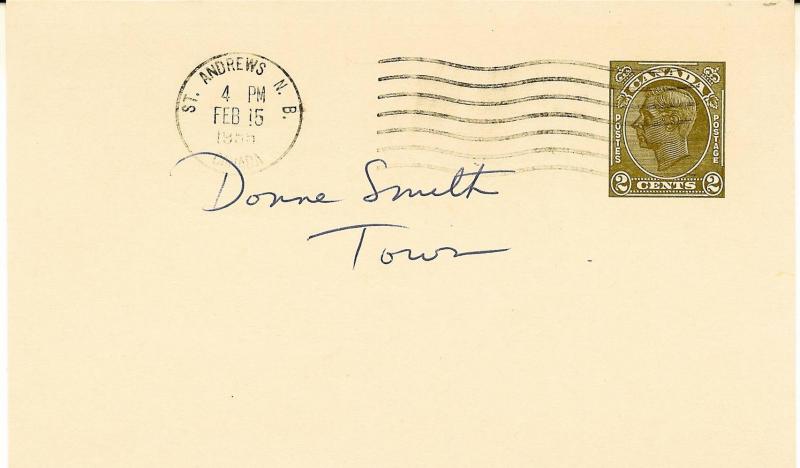 ST. ANDREWS N. B.
4 PM
FEB 15
CANADA
CANADA
POSTES
POSTAGE
2 CENTS 2
Donne Smith
Town